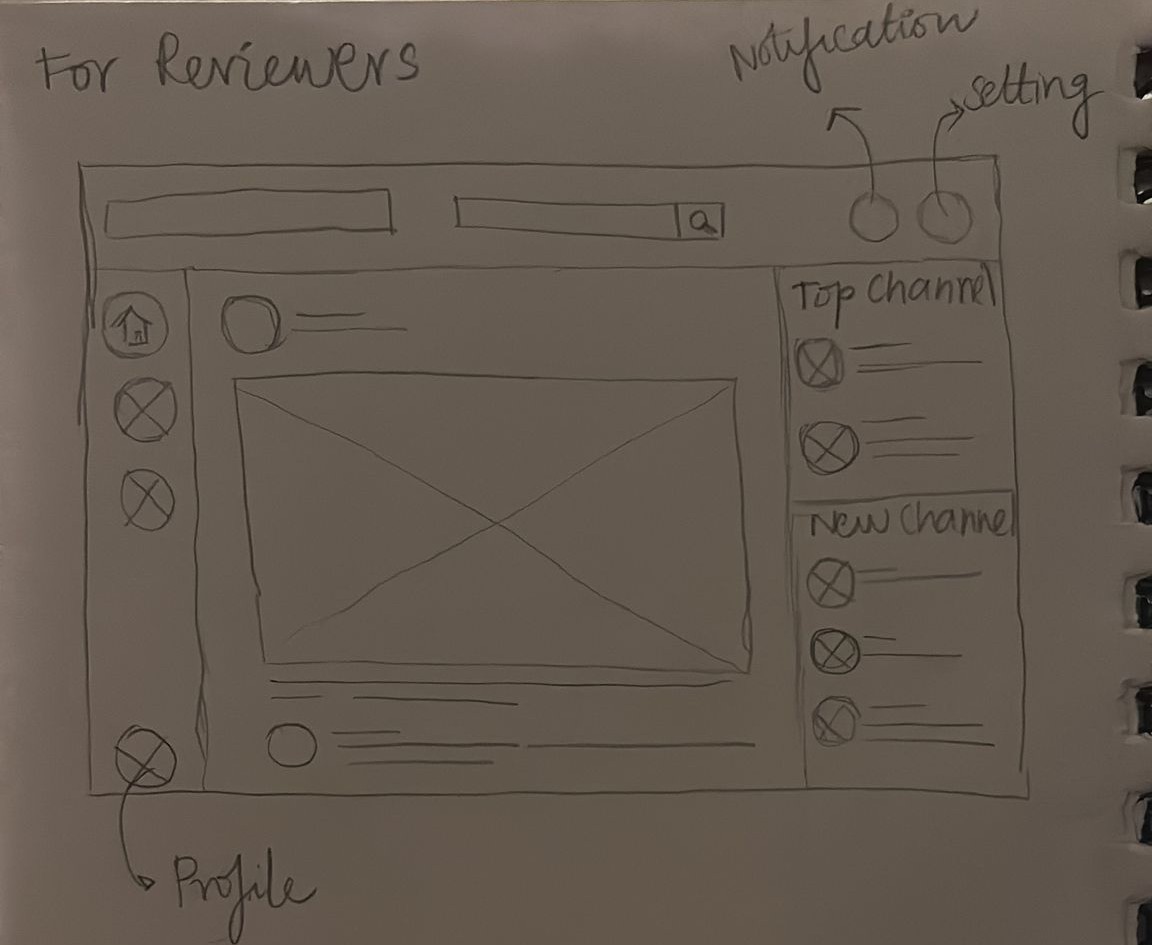 For Reviewers
Notification
setting
Top Channel
New Channel
Profile